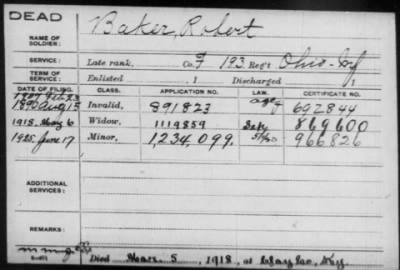 DEAD
NAME OF SOLDIER: Baker, Robert
SERVICE: Late rank, Co. F 193 Reg't Ohio Inf
TERM OF SERVICE: Enlisted , 1 Discharged
DATE OF FILING. CLASS. APPLICATION NO. LAW. CERTIFICATE NO.
1890 Aug 15 Invalid, 891823 692844
1918 May 6 Widow, 1119859 869600
1925 June 17 Minor, 1,234,099. 966826
ADDITIONAL SERVICES:
REMARKS:
Died 5, 1918, at Clay Co, Ky.